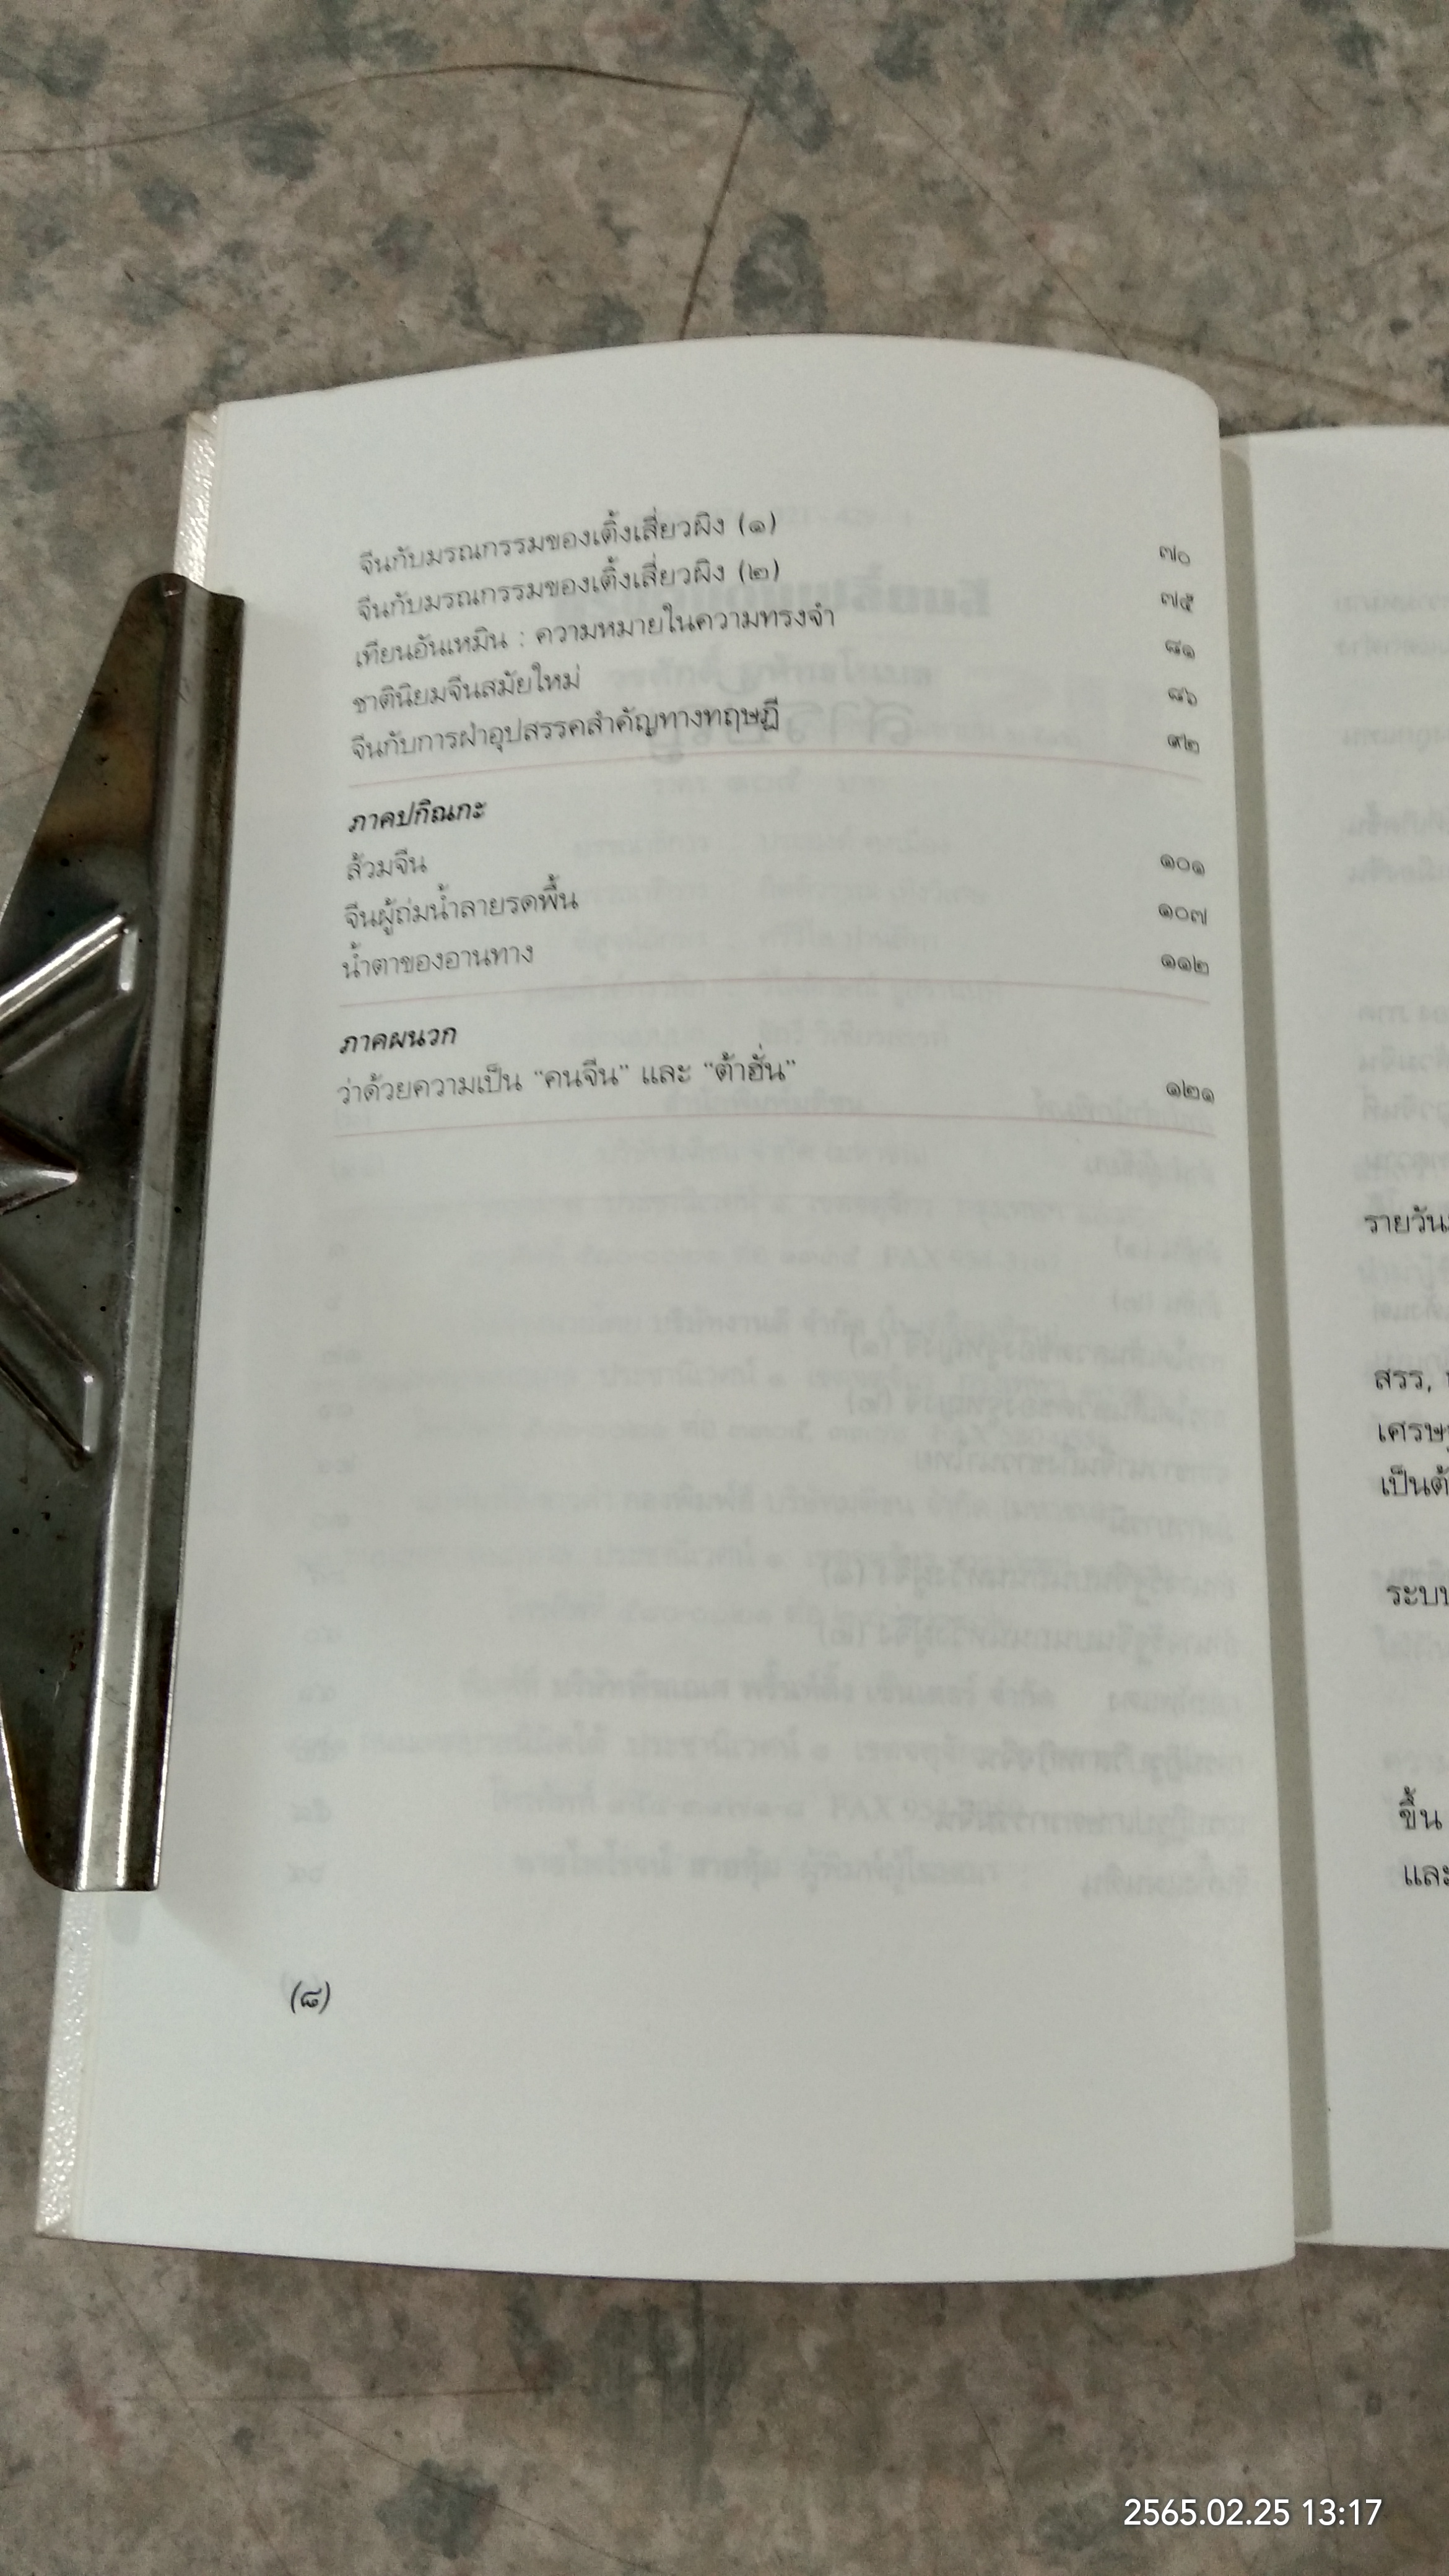 จีนกับมรณกรรมของเติ้งเสี่ยวผิง (๑) ๗๐
จีนกับมรณกรรมของเติ้งเสี่ยวผิง (๒) ๗๕
เทียนอันเหมิน : ความหมายในความทรงจำ ๘๑
ชาตินิยมจีนสมัยใหม่ ๘๖
จีนกับการฝ่าอุปสรรคสำคัญทางทฤษฎี ๙๒
ภาคปกิณกะ
ส้วมจีน ๑๐๑
จีนผู้ถ่มน้ำลายรดพื้น ๑๐๗
น้ำตาของอานทาง ๑๑๒
ภาคผนวก
ว่าด้วยความเป็น “คนจีน” และ “ต้าฮั่น” ๑๒๑
(๘)
รายวัน
สรร,
เศรษ
เป็นต้
ระบบ
ขึ้น
และ
2565.02.25 13:17